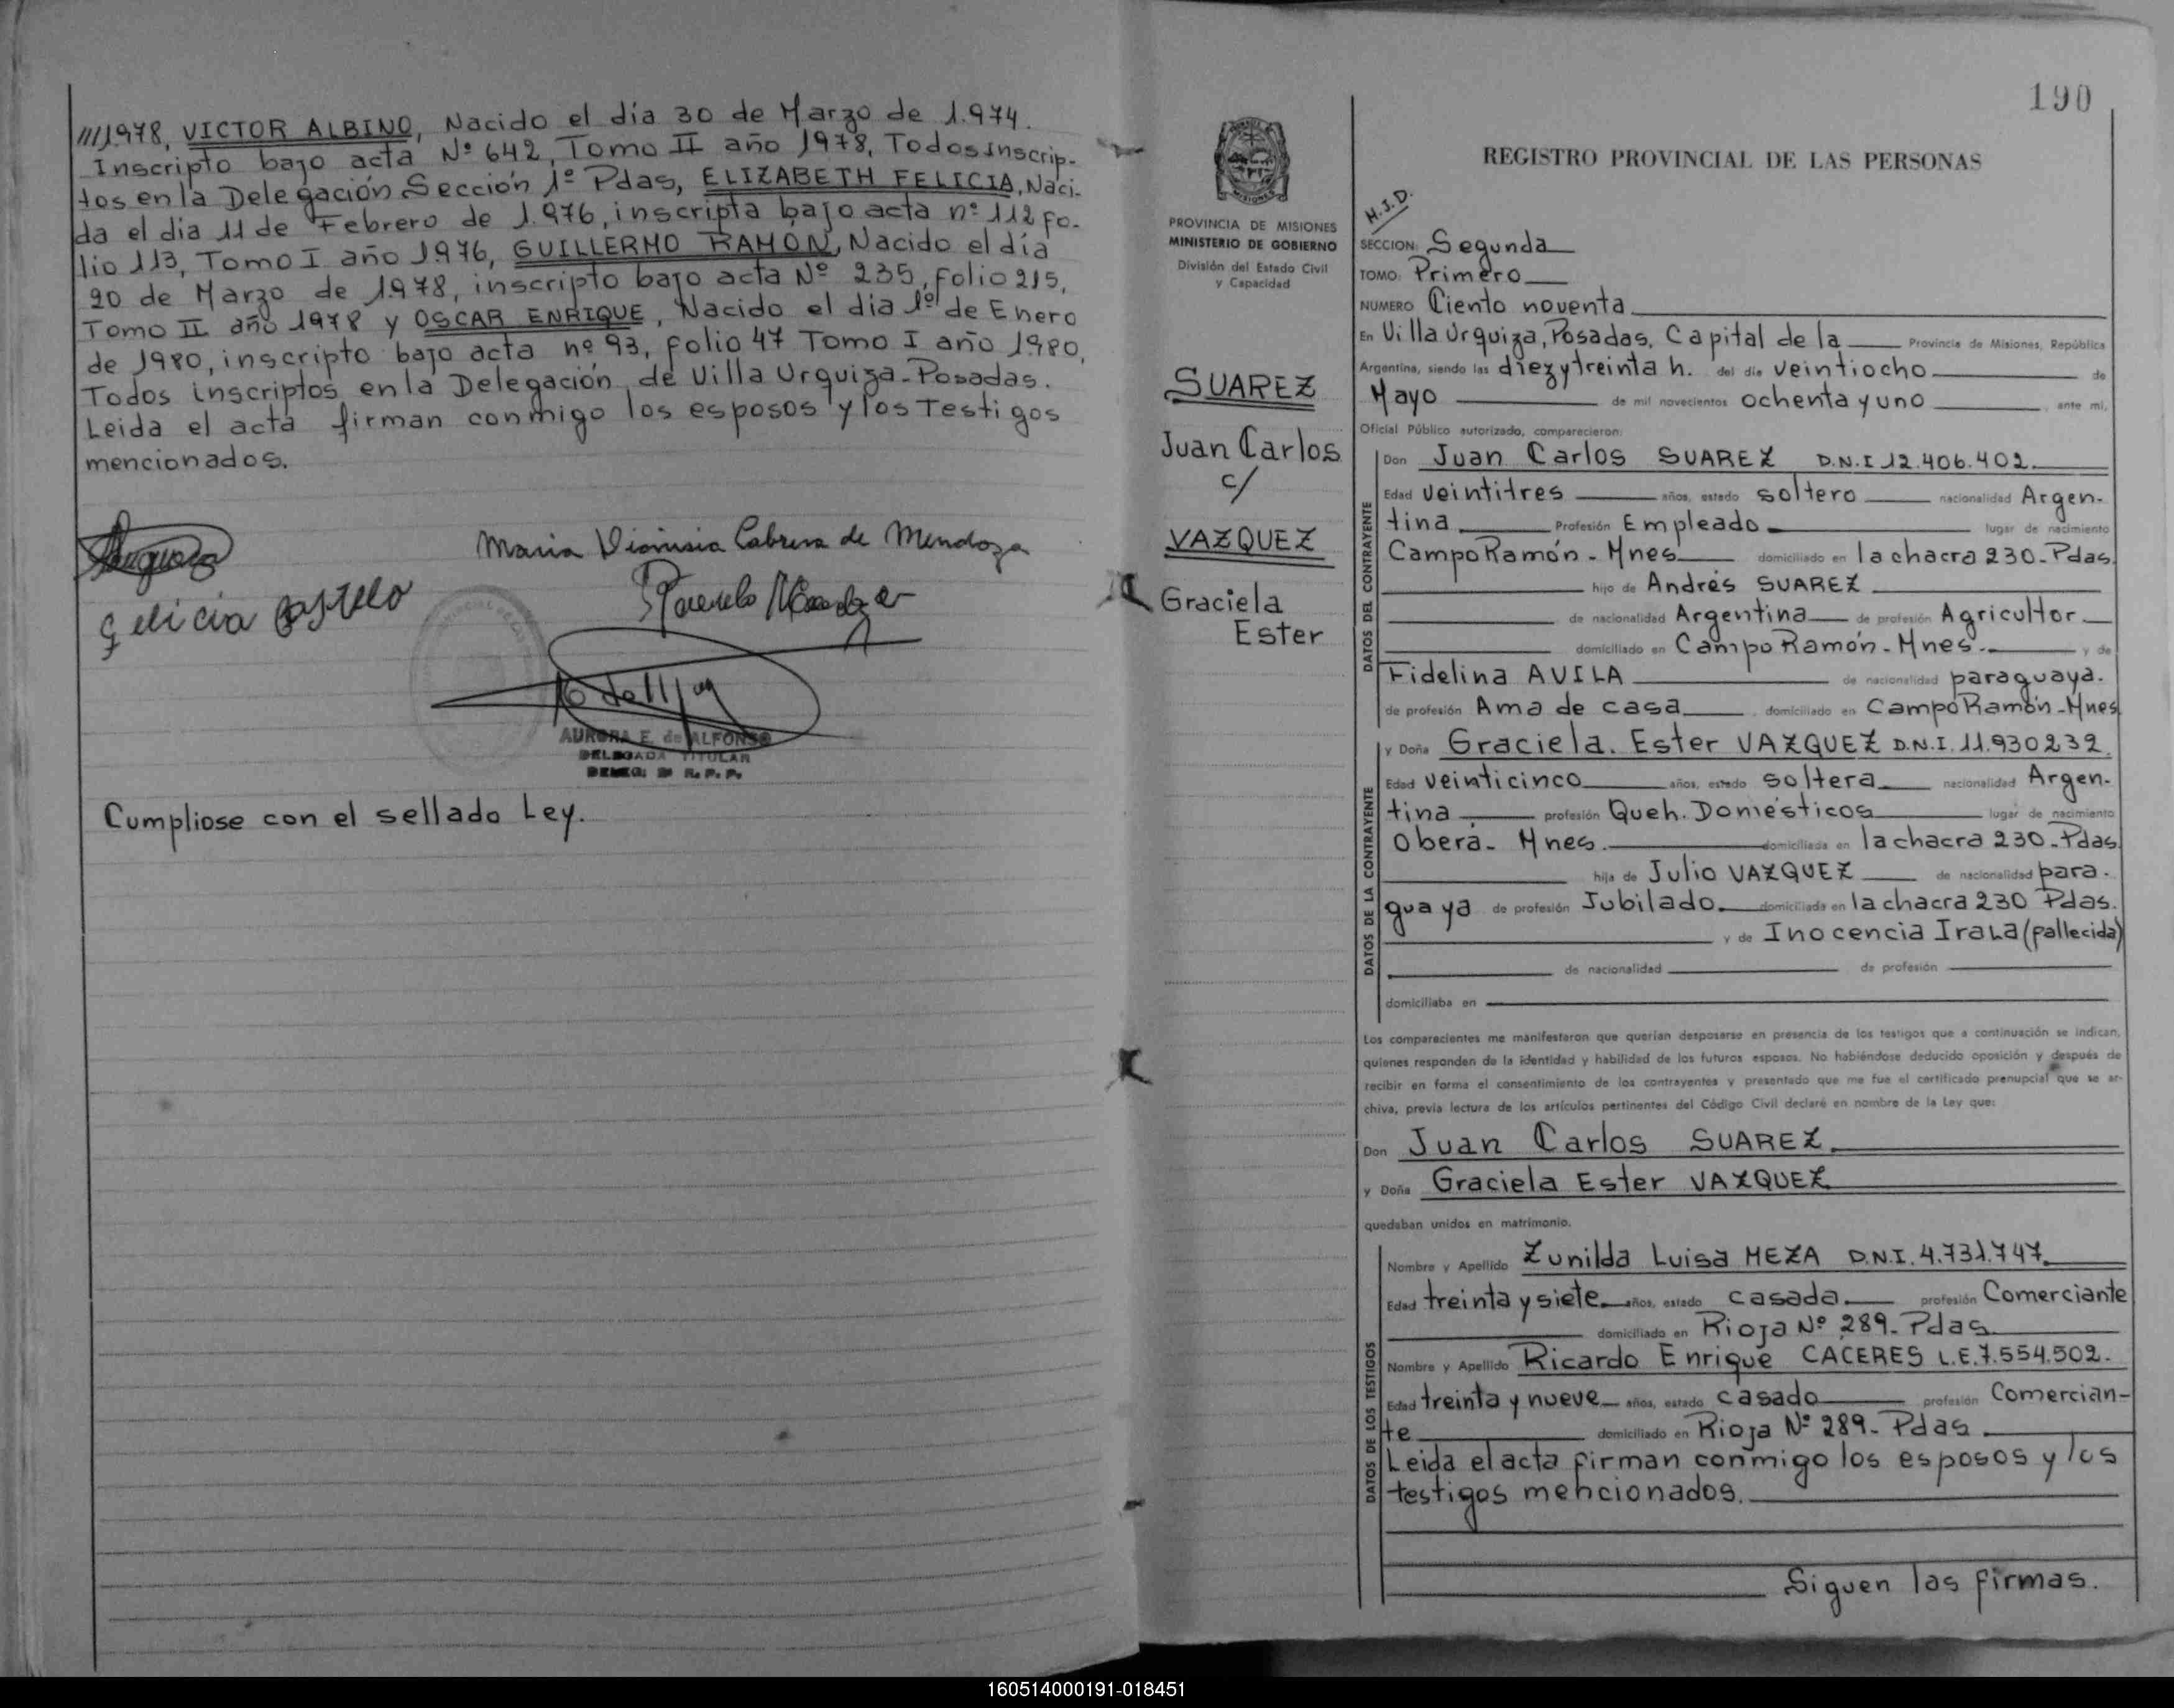 ///1.978, VICTOR ALBINO, Nacido el día 30 de Marzo de 1.974.
Inscripto bajo acta Nº 642, Tomo II año 1978, Todos inscrip-
tos en la Delegación Sección 1º Pdas, ELIZABETH FELICIA, Naci-
da el dia 11 de Febrero de 1.976, inscripta bajo acta nº 112 fo-
lio 113, Tomo I año 1976, GUILLERMO RAMON, Nacido el día
20 de Marzo de 1978, inscripto bajo acta Nº 235, folio 215,
Tomo II año 1978 y OSCAR ENRIQUE, Nacido el dia 1º de Enero
de 1980, inscripto bajo acta nº 93, folio 47 Tomo I año 1980,
Todos inscriptos en la Delegación de Villa Urquiza-Posadas.
Leida el acta firman conmigo los esposos y los Testigos
mencionados.
Maria Dionisia Cabrera de Mendoza
Felicia Castillo
AURORA E. de ALFONSO
DELEGADA TITULAR
Cumpliose con el sellado Ley.
PROVINCIA DE MISIONES
MINISTERIO DE GOBIERNO
División del Estado Civil
y Capacidad
SUAREZ
Juan Carlos
c/
VAZQUEZ
Graciela
Ester
190
REGISTRO PROVINCIAL DE LAS PERSONAS
H.J.D.
SECCION: Segunda
TOMO: Primero
NUMERO Ciento noventa
En Villa Urquiza, Posadas, Capital de la Provincia de Misiones, República
Argentina, siendo las diez y treinta h. del día veintiocho de
Mayo de mil novecientos ochenta y uno, ante mí,
Oficial Público autorizado, comparecieron:
DATOS DEL CONTRAYENTE
Don Juan Carlos SUAREZ D.N.I 12.406.402.
Edad veintitres años, estado soltero nacionalidad Argen-
tina Profesión Empleado lugar de nacimiento
Campo Ramón - Mnes domiciliado en la chacra 230-Pdas.
hijo de Andrés SUAREZ
de nacionalidad Argentina de profesión Agricultor
domiciliado en Campo Ramón - Mnes. y de
Fidelina AVILA de nacionalidad paraguaya.
de profesión Ama de casa domiciliado en Campo Ramón-Mnes
DATOS DE LA CONTRAYENTE
y Doña Graciela. Ester VAZQUEZ D.N.I. 11.930232.
Edad veinticinco años, estado soltera nacionalidad Argen-
tina profesión Queh. Domésticos lugar de nacimiento
Oberá- Mnes. domiciliada en la chacra 230-Pdas.
hija de Julio VAZQUEZ de nacionalidad para-
guaya de profesión Jubilado. domiciliado en la chacra 230 Pdas.
y de Inocencia Irala (fallecida)
de nacionalidad de profesión
domiciliaba en
Los comparecientes me manifestaron que querían desposarse en presencia de los testigos que a continuación se indican,
quienes responden de la identidad y habilidad de los futuros esposos. No habiéndose deducido oposición y después de
recibir en forma el consentimiento de los contrayentes y presentado que me fue el certificado prenupcial que se ar-
chiva, previa lectura de los artículos pertinentes del Código Civil declaré en nombre de la Ley que:
Don Juan Carlos SUAREZ
y Doña Graciela Ester VAZQUEZ
quedaban unidos en matrimonio.
DATOS DE LOS TESTIGOS
Nombre y Apellido Zunilda Luisa MEZA D.N.I. 4.731.747.
Edad treinta y siete años, estado casada profesión Comerciante
domiciliado en Rioja Nº 289- Pdas
Nombre y Apellido Ricardo Enrique CACERES L.E. 7.554.502.
Edad treinta y nueve años, estado casado profesión Comercian-
te domiciliado en Rioja Nº 289- Pdas.
Leida el acta firman conmigo los esposos y los
testigos mencionados.
Siguen las firmas.
160514000191-018451